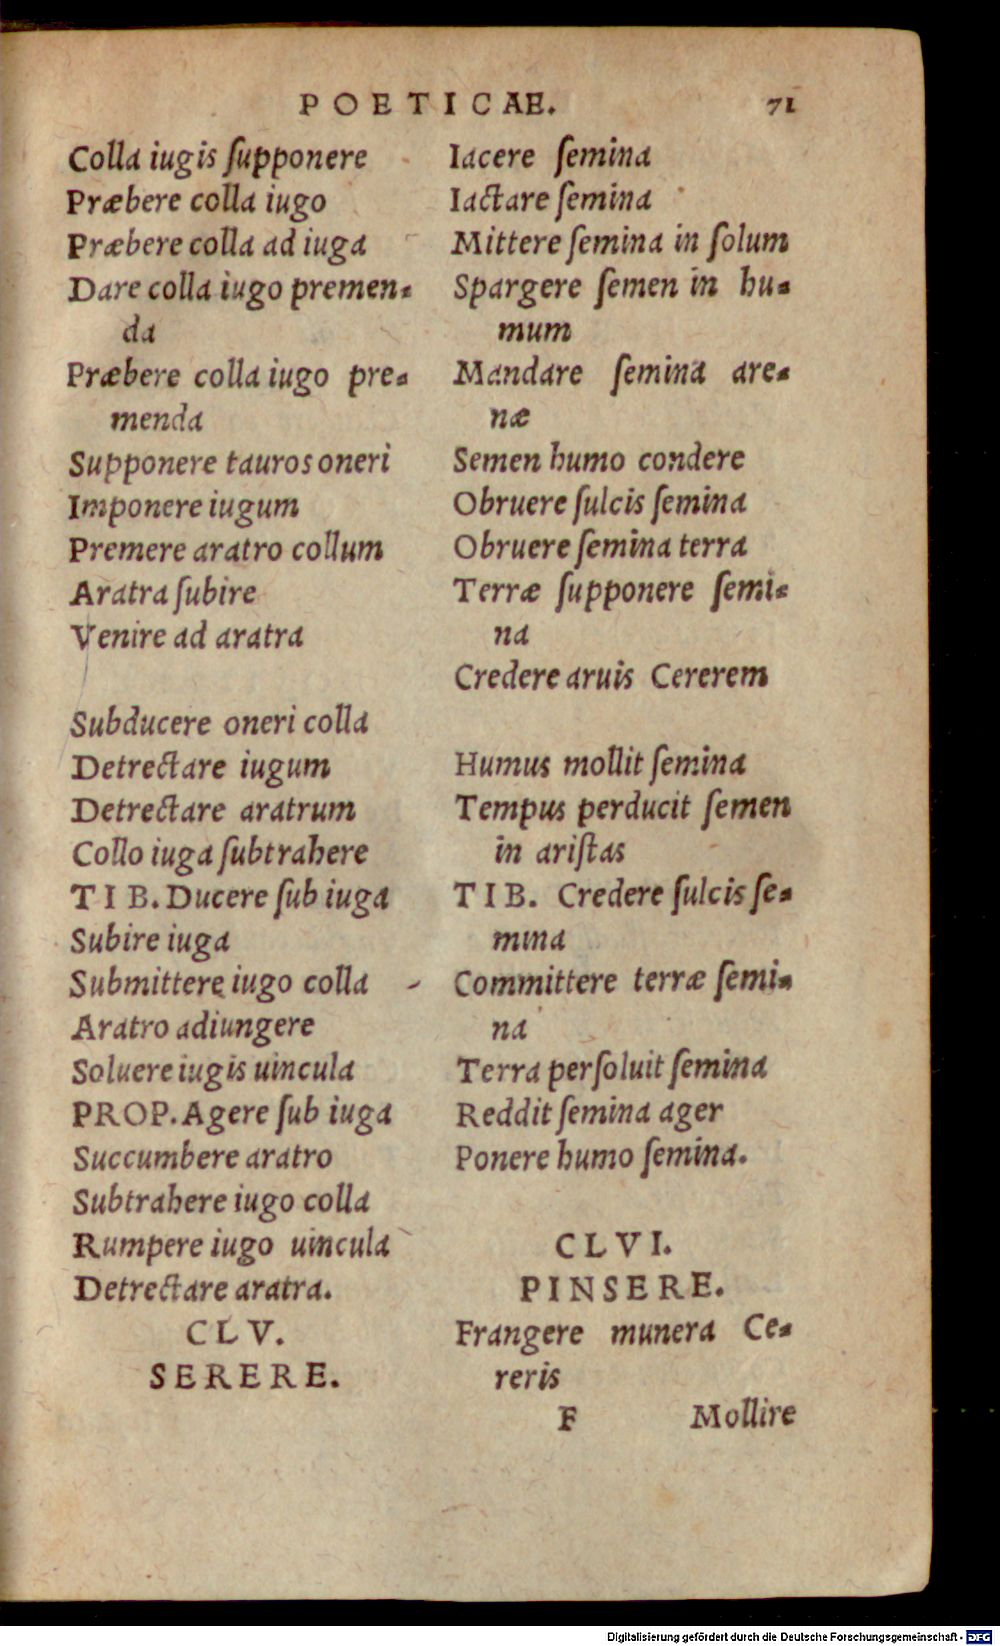 POETICAE. 71
Colla iugis ſupponere
Præbere colla iugo
Præbere colla ad iuga
Dare colla iugo premen-
da
Præbere colla iugo pre-
menda
Supponere tauros oneri
Imponere iugum
Premere aratro collum
Aratra ſubire
Venire ad aratra
Subducere oneri colla
Detrectare iugum
Detrectare aratrum
Collo iuga ſubtrahere
TIB. Ducere ſub iuga
Subire iuga
Submittere iugo colla
Aratro adiungere
Soluere iugis uincula
PROP. Agere ſub iuga
Succumbere aratro
Subtrahere iugo colla
Rumpere iugo uincula
Detrectare aratra.
CLV.
SERERE.
Iacere ſemina
Iactare ſemina
Mittere ſemina in ſolum
Spargere ſemen in hu-
mum
Mandare ſemina are-
næ
Semen humo condere
Obruere ſulcis ſemina
Obruere ſemina terra
Terræ ſupponere ſemi-
na
Credere aruis Cererem
Humus mollit ſemina
Tempus perducit ſemen
in ariſtas
TIB. Credere ſulcis ſe-
mina
Committere terræ ſemi-
na
Terra perſoluit ſemina
Reddit ſemina ager
Ponere humo ſemina.
CLVI.
PINSERE.
Frangere munera Ce-
reris
F Mollire
Digitalisierung gefördert durch die Deutsche Forschungsgemeinschaft - DFG